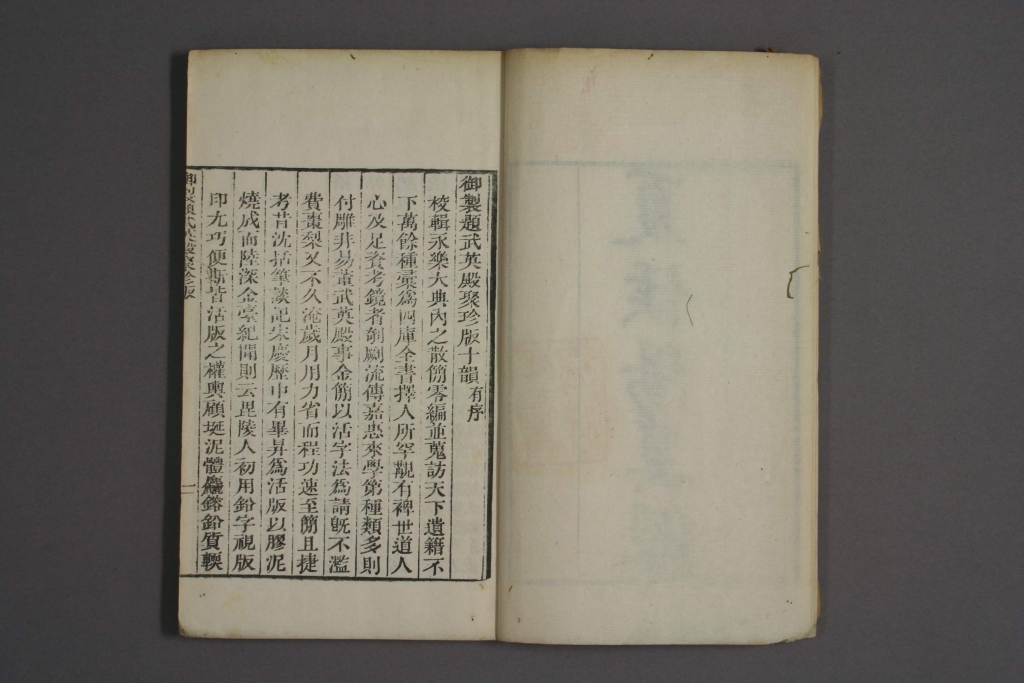 御製題武英殿聚珍版十韻有序
校輯永樂大典內之散簡零編並蒐訪天下遺籍不
下萬餘種彙為四庫全書擇人所罕覯有裨世道人
心及足資考鏡者剞劂流傳嘉惠來學第種類多則
付雕非易董武英殿事金簡以活字法為請既不濫
費棗梨又不久淹歲月用力省而程功速至簡且捷
考昔沈括筆談記宋慶歷中有畢昇為活版以膠泥
燒成而陸深金臺紀聞則云毘陵人初用鉛字視版
印尤巧便斯皆活版之權輿顧埏泥體麤鎔鉛質輭
御製題武英殿聚珍版
一